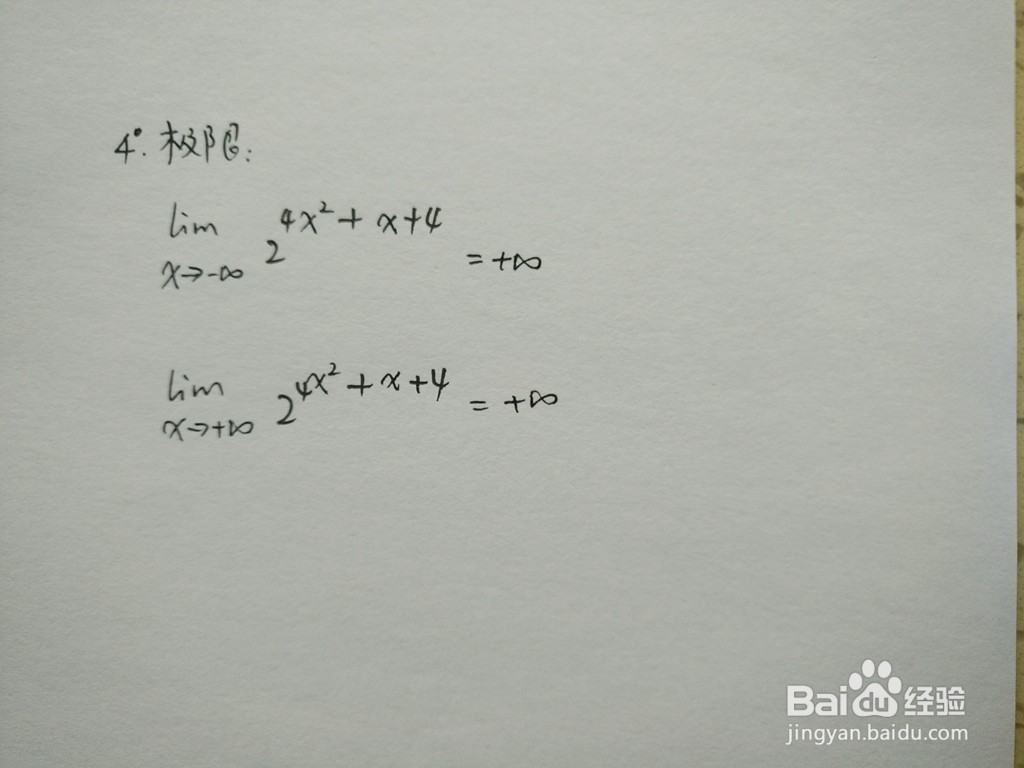 4°. 极限:
lim 2^{4x²+x+4} = +∞
x→-∞
lim 2^{4x²+x+4} = +∞
x→+∞
Baidu经验
jingyan.baidu.com